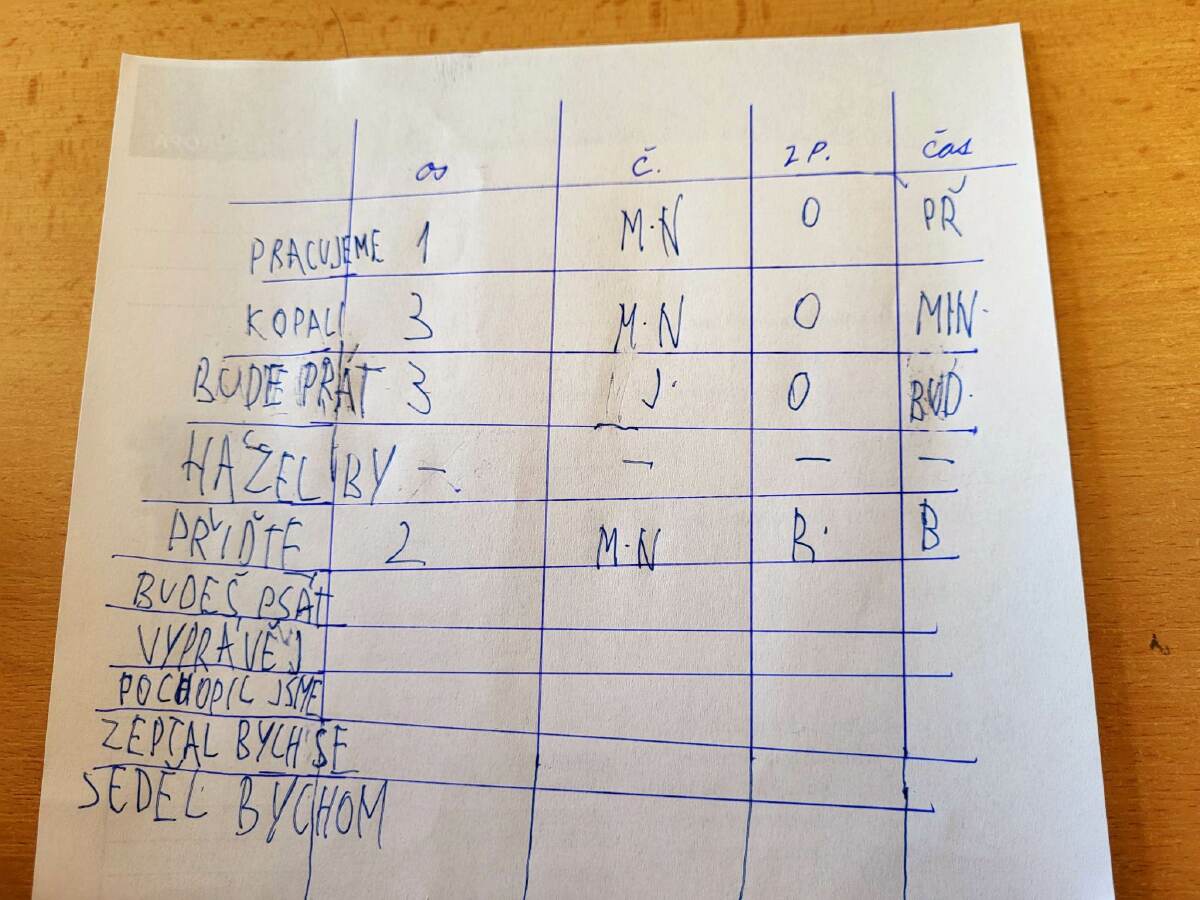 os č. ZP. čas
PRACUJEME 1 M.N O PŘ
KOPALI 3 M.N O MIN.
BUDE PRÁT 3 J. O BUD.
HÁZEL BY - - - -
PŘIĎTE 2 M.N R. B
BUDEŠ PSÁT
VYPRÁVĚJ
POCHOPIL JSME
ZEPTAL BYCH SE
SEDĚL BYCHOM